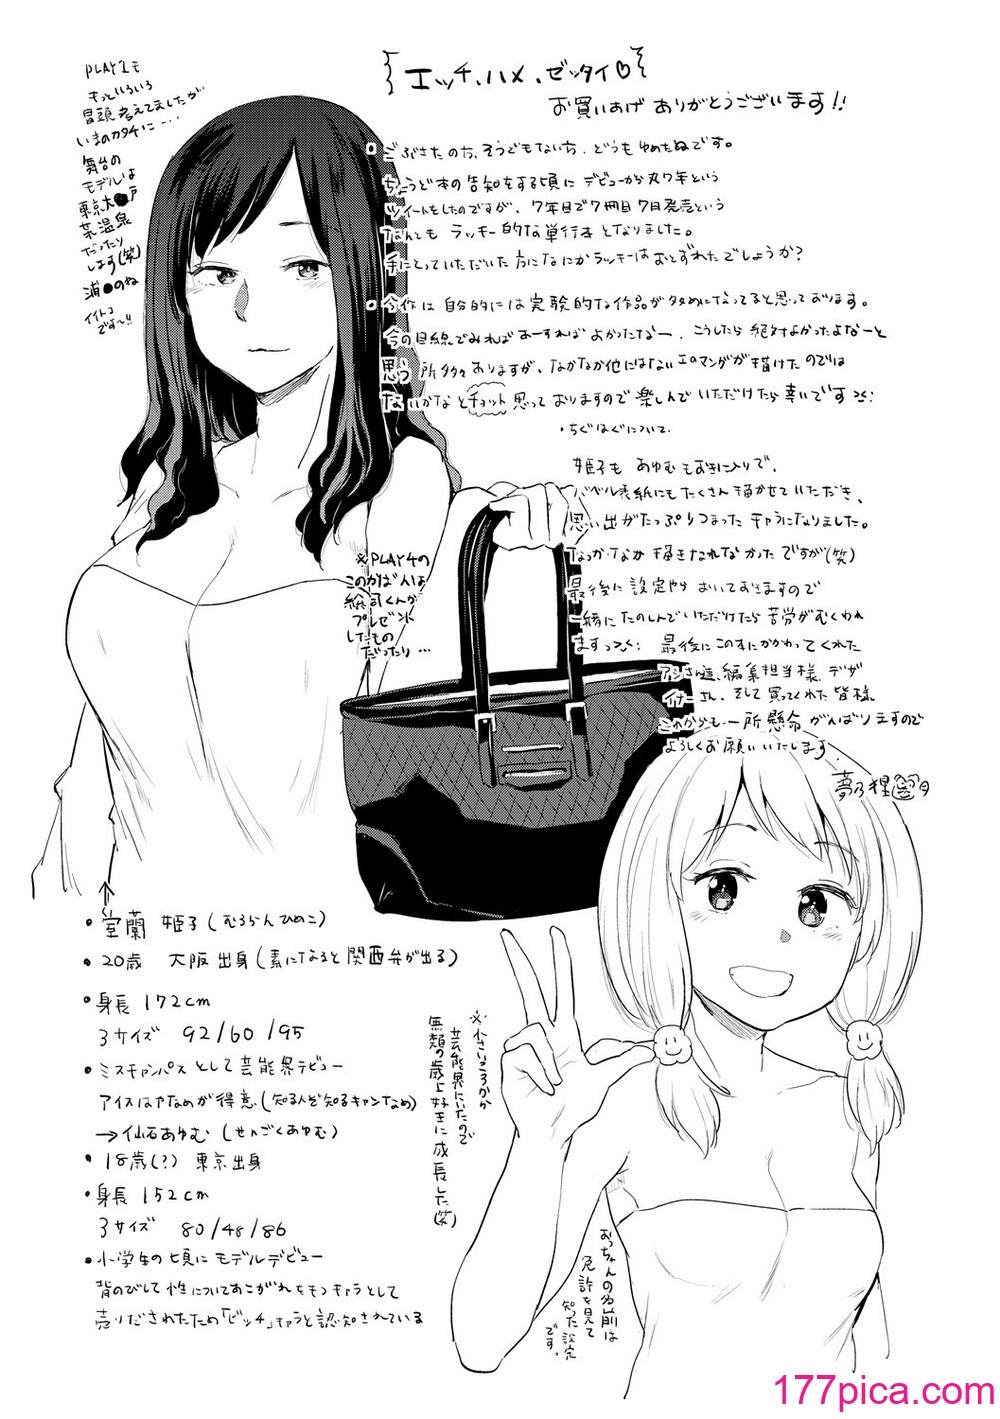 エッチ、ハメ、ゼッタイ♡
お買いあげ ありがとうございます!!
PLAY1も
もっといろいろ
冒頭考えてましたが
いまのカタチに…
舞台の
モデルは
東京大●戸
温泉
だったり
します(笑)
浦●のね
イイトコ
です〜!!
ごぶさたの方、そうでもない方、どうもゆめたぬです。
ちょうど本の告知をする頃に デビューから丸7年という
ツイートをしたのですが、7年目で7冊目7月発売という
なんとも ラッキー的な単行本となりました。
手にとっていただいた方になにかラッキーはおとずれたでしょうか?
今作は自分的には実験的な作品が多めになってると思っております。
今の目線でみればあーすればよかったなー、こうしたら絶対よかったよなーと
思う所多々ありますが、なかなか他にはないエロマンガが描けたのでは
ないかなとチョット思っておりますので楽しんでいただけたら幸いです
・ちぐはぐについて
姫子も あゆむもお気に入りで、
バベル表紙にもたくさん描かせていただき、
思い出がたっぷりつまったキャラになりました。
なかなか描きなれなかったですが(笑)
最後に設定やら おいておきますので
一緒にたのしんでいただけたら苦労がむくわれ
ますっ 最後にこの本にかかわってくれた
アシさん達、編集担当様、デザ
イナーさん、そして買ってくれた皆様
これからも一所懸命がんばりますので
よろしくお願いいたします
夢乃狸
※PLAY4の
このかばんは
総司くんが
プレゼント
したもの
だったり…
・室蘭 姫子(むろらんひめこ)
・20歳 大阪出身(素になると関西弁が出る)
・身長 172cm
3サイズ 92/60/95
・ミスキャンパスとして芸能界デビュー
アイスはやなめが得意(知る人ぞ知るキャンなめ)
→仙石あゆむ(せんごくあゆむ)
・18歳(?) 東京出身
・身長 152cm
3サイズ 80/48/86
・小学生の頃にモデルデビュー
背のびして性についてあこがれをもつキャラとして
売りだされたため「ビッチ」キャラと認知されている
※小さいころから
芸能界にいたので
無類の歳上好きに成長した(笑)
おっちゃんの名前は
免許を見て
知った設定
です。
177pica.com